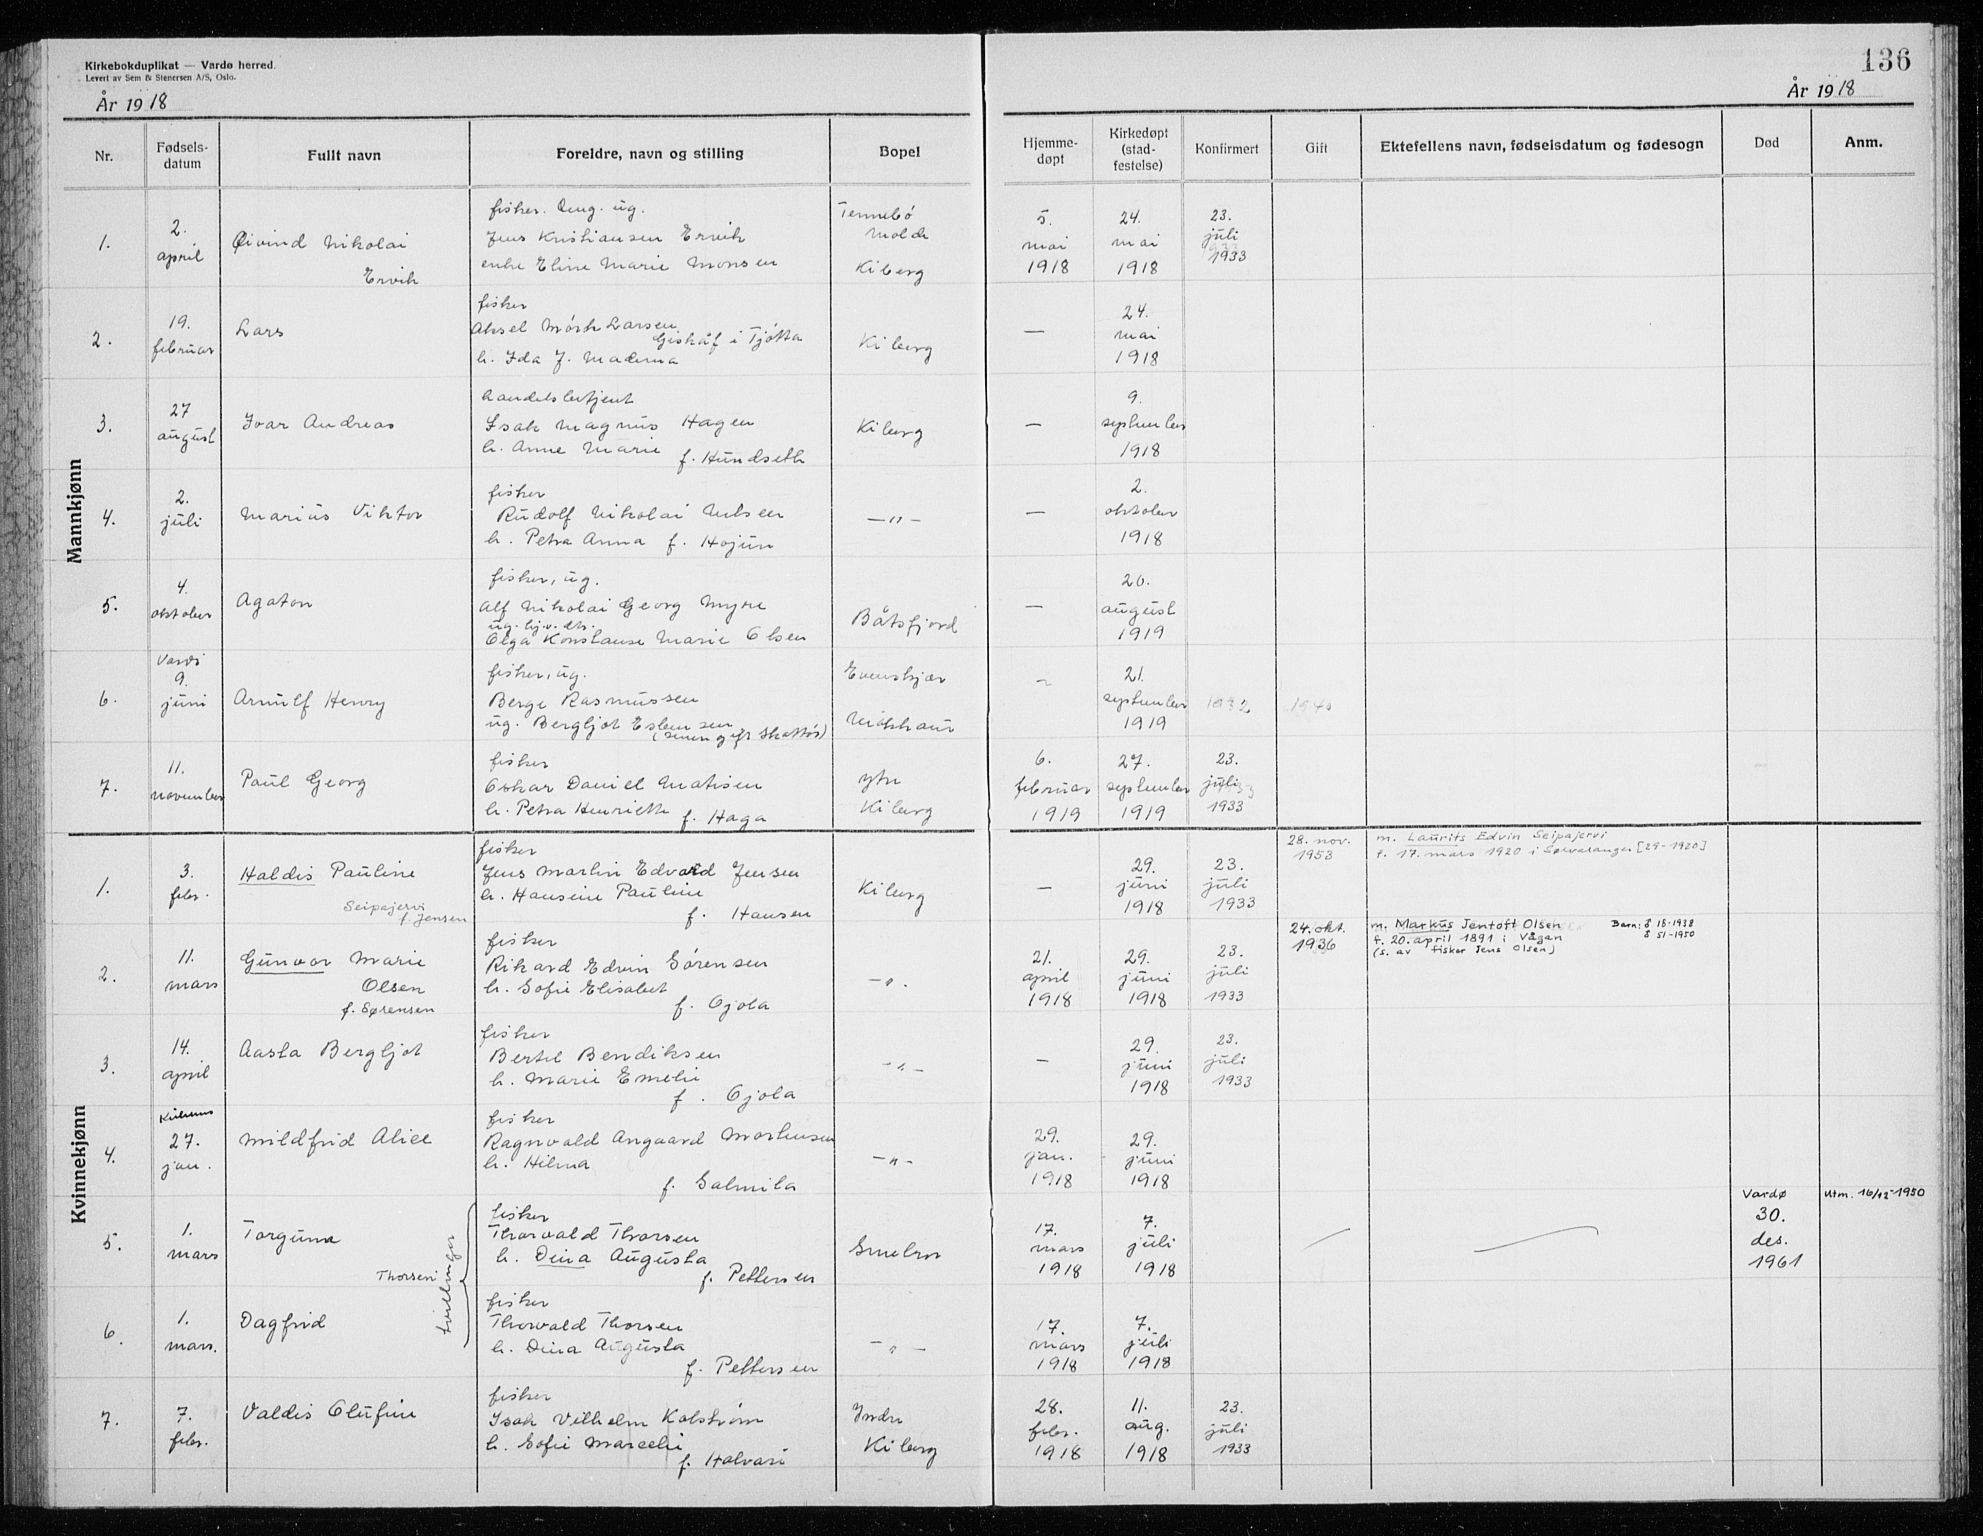 Kirkebokduplikat — Vardø herred.
Levert av Sem & Stenersen A/S, Oslo.
År 1918
136
År 1918
Nr.
Fødsels-
datum
Fullt navn
Foreldre, navn og stilling
Bopel
Hjemme-
døpt
Kirkedøpt
(stad-
festelse)
Konfirmert
Gift
Ektefellens navn, fødselsdatum og fødesogn
Død
Anm.
Mannkjønn
1.
2.
april
Øivind Nikolai
Ervik
fisker. ug.
Jens Kristiansen Ervik
enke Eline Marie Monsen
Molde
Kiberg
5.
mai
1918
24.
mai
1918
23.
juli
1933
2.
19.
februar
Lars
fisker
Aksel Mörk Larsen
i Tjøtta
h. Ida J.
Kiberg
—
24.
mai
1918
3.
27
august
Ivar Andreas
handelsbetjent
Isak Magnus Hagen
h. Anne Marie
f. Hundseth
Kiberg
—
9.
september
1918
4.
2.
juli
Marius Viktor
fisker
Rudolf Nikolai Nilsen
h. Petra Anna f. Hojun
— " —
—
2.
oktober
1918
5.
4.
oktober
Agaton
fisker, ug.
Alf Nikolai Georg Myre
ug.
Olga Konstanse Marie Olsen
Båtsfjord
—
20.
august
1919
6.
Vardö
9.
juni
Arnulf Henry
fisker, ug.
Berge Rasmussen
ug. Bergljot Esbensen
(senere gift Skattör)
Evenskjær
Makkaur
—
21.
september
1919
1932
1940
7.
11.
november
Paul Georg
fisker
Oskar Daniel Matisen
h. Petra Henriette
f. Haga
ytre
Kiberg
6.
februar
1919
27.
september
1919
23.
juli
1933
Kvinnekjønn
1.
3.
febr.
Haldis Pauline
Seipajervi
f. Jensen
fisker
Jens Martin Edvard Jensen
h. Hansine Pauline
f. Hansen
Kiberg
—
29.
juni
1918
23.
juli
1933
28. nov.
1953
m. Laurits Edvin Seipajervi
f. 17. mars 1920 i Sørvaranger [29-1920]
2.
11.
mars
Gunvor Marie
Olsen
f. Sørensen
fisker
Rikard Edvin Sörensen
h. Sofie Elisabet
f. Ojola
— " —
21.
april
1918
29.
juni
1918
23.
juli
1933
24. okt.
1936
m. Markus Jentoft Olsen
f. 20. april 1891 i Vågan
(s. av fisker Jens Olsen)
Barn: 18-1938
51-1950
3.
14.
april
Aasta Bergljot
fisker
Bertel Bendiksen
h. Marie Emelie
f. Ojola
— " —
—
29.
juni
1918
23.
juli
1933
4.
27.
jan.
Mildfrid Alice
fisker
Ragnvald Angaard Morthensen
h. Hilma
f. Salmila
— " —
29.
jan.
1918
29.
juni
1918
5.
1.
mars
Torgunn
Thorsen
tvillinger
fisker
Thorvald Thorsen
h. Dina Augusta
f. Pettersen
Smelror
17.
mars
1918
7.
juli
1918
—
—
Vardø
30.
des.
1961
Utm. 16/12-1950
6.
1.
mars.
Dagfrid
fisker
Thorvald Thorsen
h. Dina Augusta
f. Pettersen
— " —
17.
mars
1918
7.
juli
1918
7.
7.
febr.
Valdis Olufine
fisker
Isak Vilhelm Kolström
h. Sofie Marcelie
f. Halvari
Indre
Kiberg
28.
febr.
1918
11.
aug.
1918
23.
juli
1933